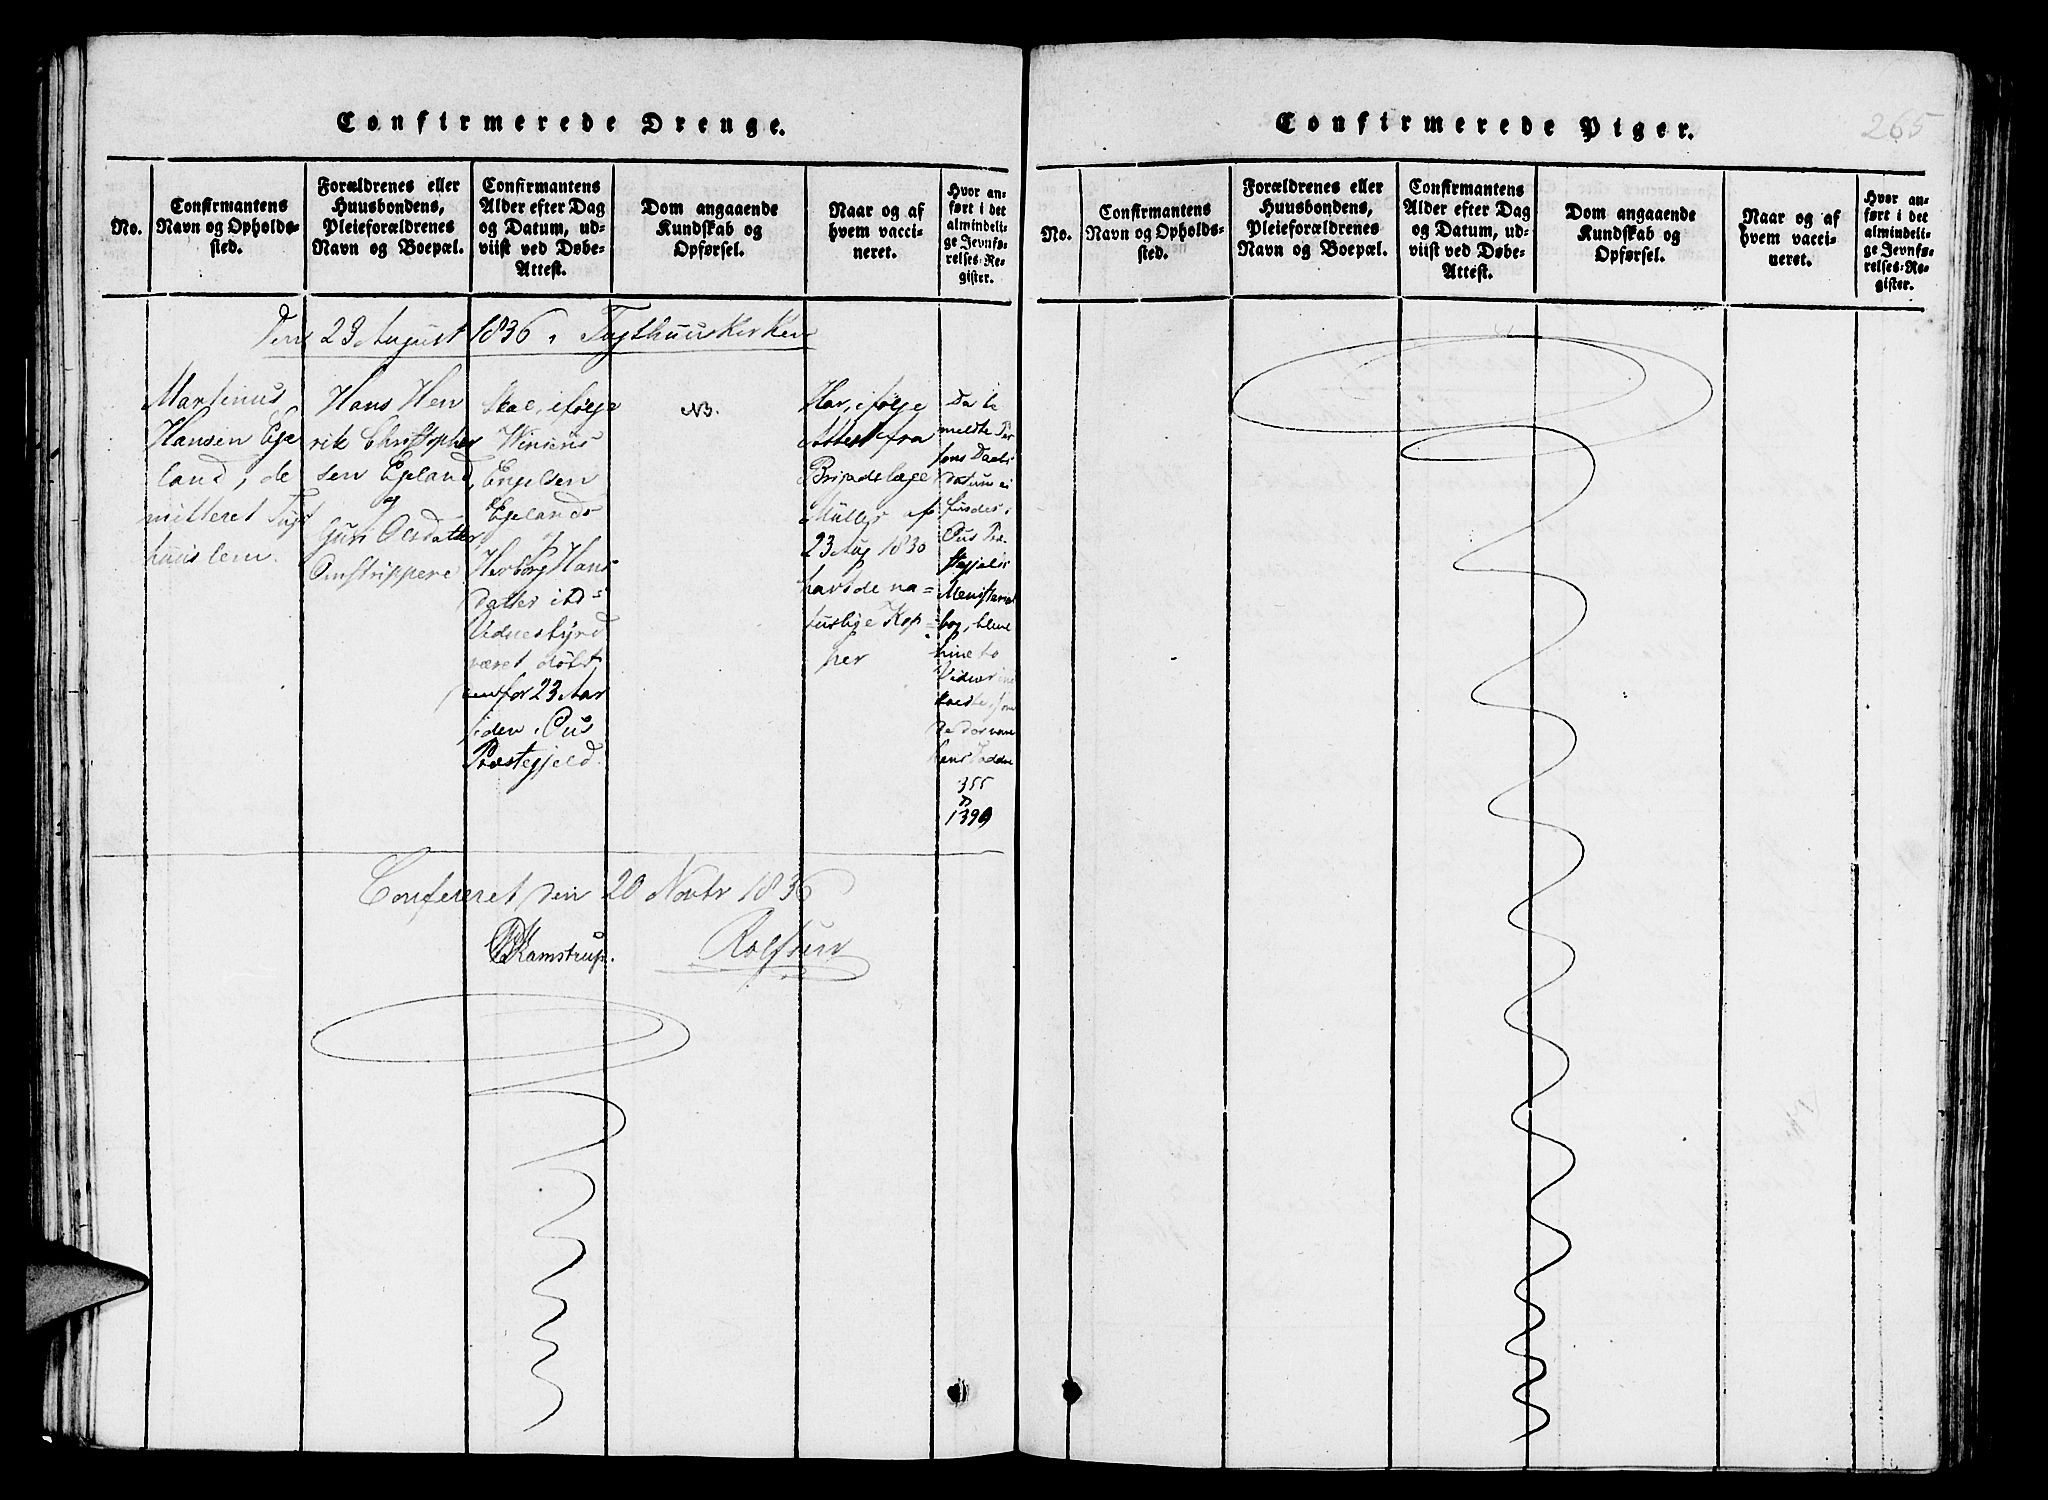 Confirmerede Drenge.
No.
Confirmantens
Navn og Opholds-
sted.
Forældrenes eller
Huusbondens,
Pleieforældrenes
Navn og Boepæl.
Confirmantens
Alder efter Dag
og Datum, ud-
viist ved Døbe-
Attest.
Dom angaaende
Kundskab og
Opførsel.
Naar og af
hvem vacci-
neret.
Hvor an-
ført i det
almindeli-
ge Jevnfø-
relses-Re-
gister.
Den 23 August 1836 i Tugthuuskirken
Martinus
Hansen Ege
land, de
mitteret Tugt
huuslem.
Hans Hen
rik Christopher
sen Egeland,
og
Guri Olsdatter
Omstrippere
Skal, ifølge
Engelsen
Egelands
og
Herborg Hans
datter
Vidnesbyrd
været døbt
for 23 Aar
siden i Ous
Præstegjeld.
NB.
Har, ifølge
Attest fra
Brigadelæge
Müller af
23 Aug 1830
havt de na=
turlige Kop=
per
Da be
meldte Per
sons Daabs
datum ei
findes i
Ous Præ
stegjelds
Ministerial
bog, bleve
hine to
Vidner ind
kaldte, som
355
1399
Confereret den 20 Novbr 1836
Kamstrup.
Rolfsen
Confirmerede Piger.
265
No.
Confirmantens
Navn og Opholds-
sted.
Forældrenes eller
Huusbondens,
Pleieforældrenes
Navn og Boepæl.
Confirmantens
Alder efter Dag
og Datum, ud-
viist ved Døbe-
Attest.
Dom angaaende
Kundskab og
Opførsel.
Naar og af
hvem vacci-
neret.
Hvor an-
ført i det
almindeli-
ge Jevnfø-
relses-Re-
gister.